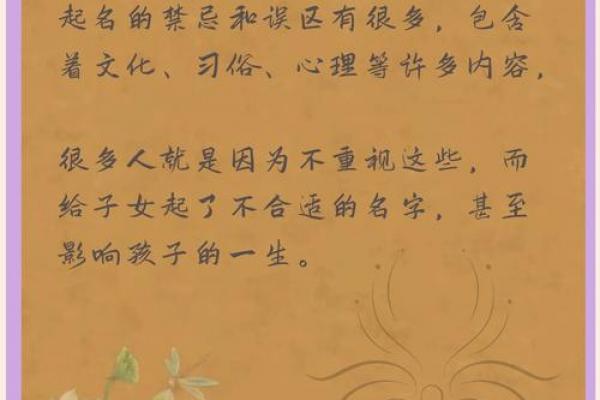 起名的禁忌和误区有很多，包含
着文化、习俗、心理等许多内容，
很多人就是因为不重视这些，而
给子女起了不合适的名字，甚至
影响孩子的一生。